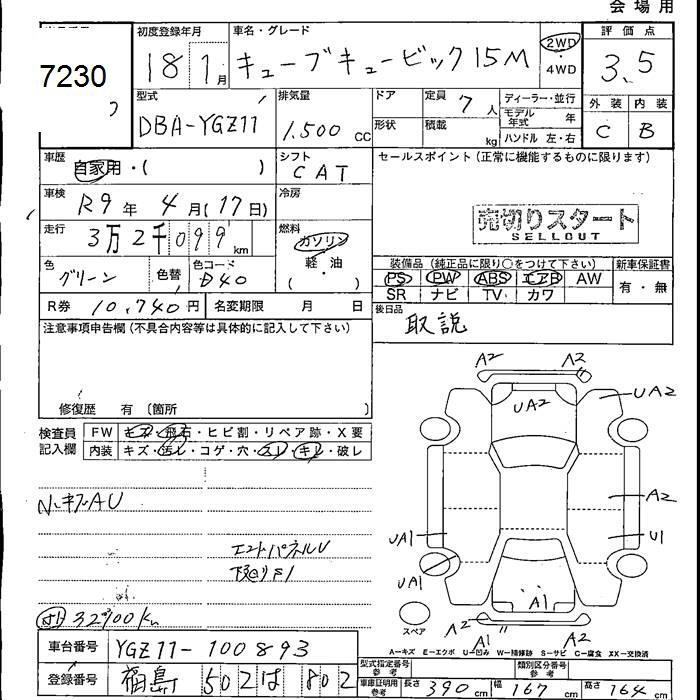 会場用
7230
初度登録年月
18 1月
車名・グレード
キューブキュービック 15M
2WD
・
4WD
評価点
3.5
外装 内装
C B
型式
DBA-YGZ11
排気量
1.500 cc
ドア
形状
定員 7人
積載 kg
ディーラー・並行
モデル年式 年
ハンドル 左・右
車歴
自家用・( )
シフト
CAT
セールスポイント(正常に機能するものに限ります)
車検
R9年 4月(17日)
冷房
売切りスタート
SELLOUT
走行
3万2千099km
燃料
ガソリン
軽・油
( )
色
グリーン
色替
色コード
D40
装備品(純正品に限り○をつけて下さい)
PS PW ABS エアB AW
SR ナビ TV カワ
新車保証書
有・無
R券 10,740円
名変期限 月 日
後日品
取説
注意事項申告欄(不具合内容等は具体的に記入して下さい)
修復歴 有 〔箇所 〕
検査員
記入欄
FW キズ・飛石・ヒビ割・リペア跡・X要
内装 キズ・汚レ・コゲ・穴・スレ・キレ・破レ
A2 A2
UA2
UA2
A2
UA1 U1
UA1
A1
A2 A1 A2
スペア
エンドパネルU
下廻りS1
32100km
A−キズ E−エクボ U−凹み W−補修跡 S−サビ C−腐食 XX−交換済
車台番号 YGZ11-100893
登録番号 福島 502 は 802
型式指定番号
参考
類別区分番号
参考
車庫証明用
参考
長さ 390cm 幅 167cm 高さ 164cm